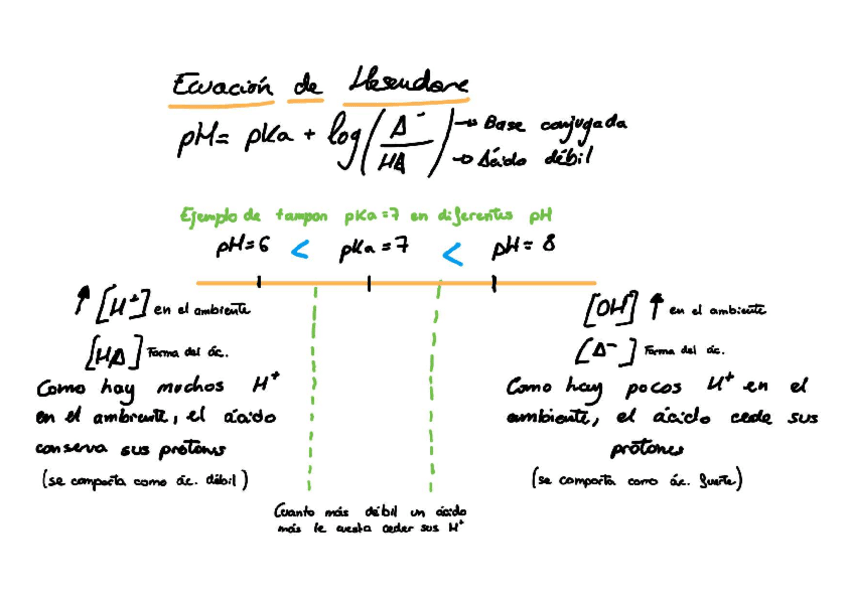 Ecuación de Hesendore
pH = pKa + log(A⁻/HA) → Base conjugada
→ Ácido débil
Ejemplo de tampon pKa = 7 en diferentes pH
pH = 6 < pKa = 7 < pH = 8
↑ [H⁺] en el ambiente
[HA] Forma del ác.
Como hay muchos H⁺
en el ambiente, el ácido
conserva sus protones
(se comporta como ác. débil)
[OH] ↑ en el ambiente
[A⁻] Forma del ác.
Como hay pocos H⁺ en el
ambiente, el ácido cede sus
protones
(se comporta como ác. fuerte)
Cuanto más débil un ácido
más le cuesta ceder sus H⁺